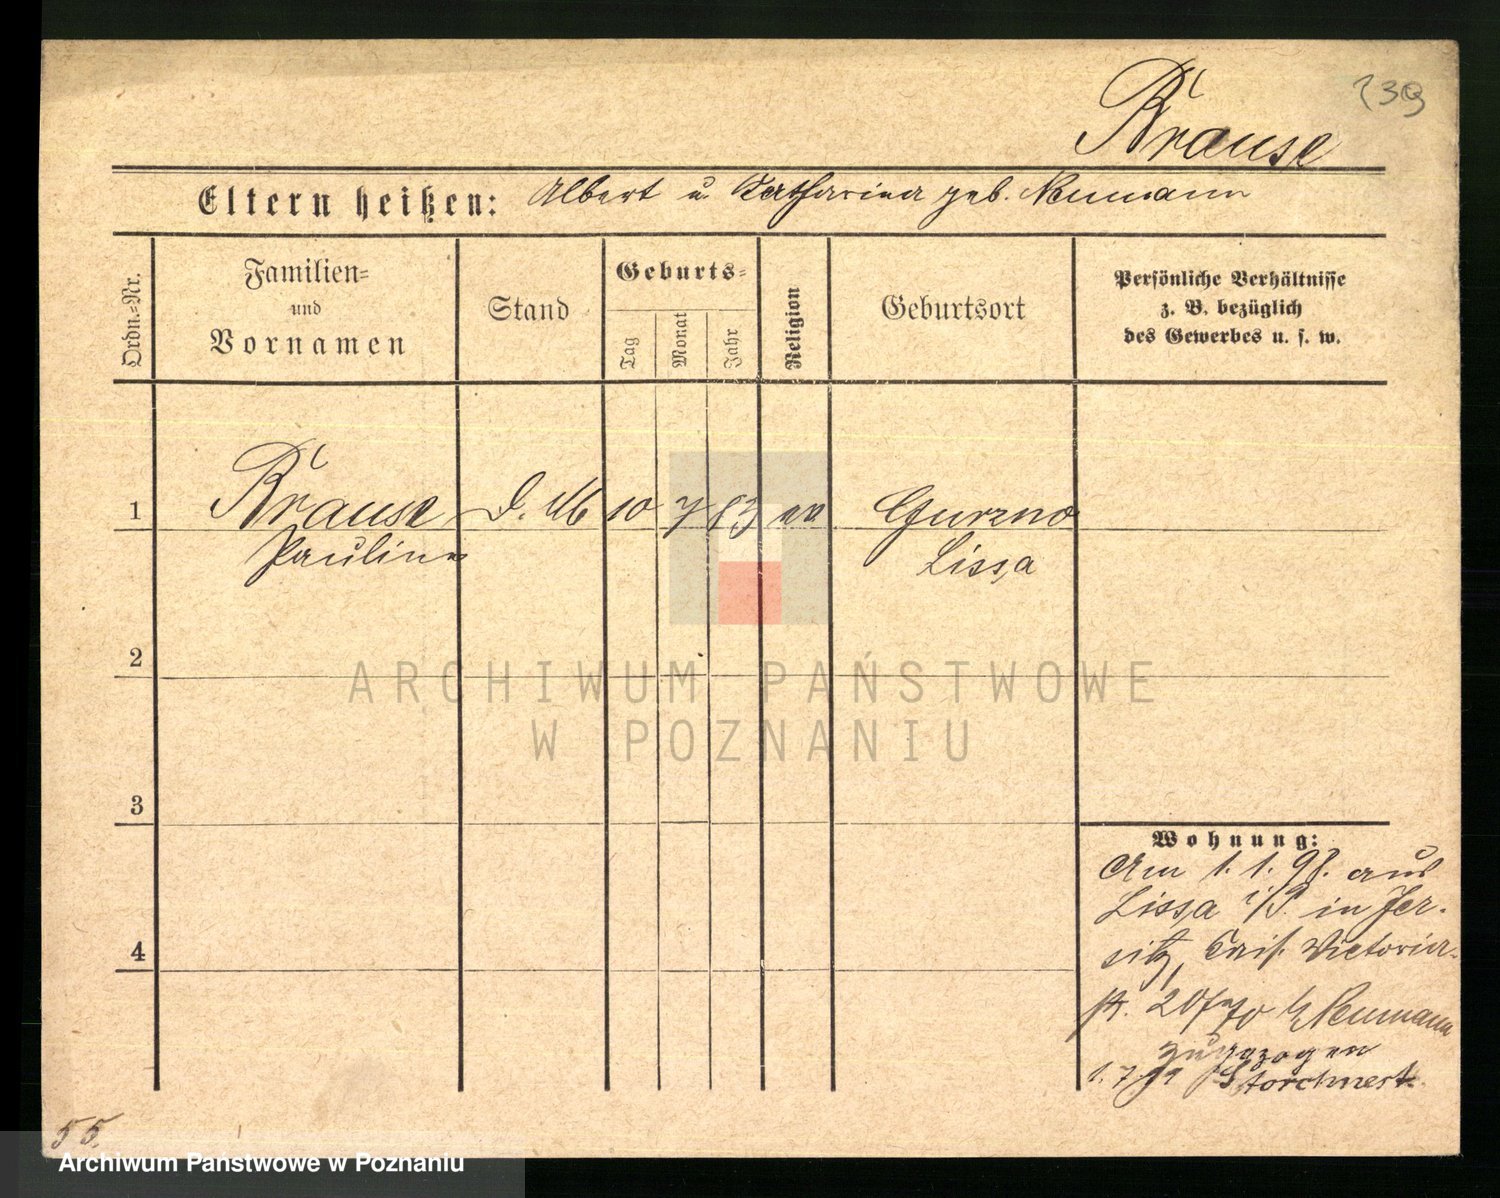 239
Krause
Eltern heißen: Albert u. Katharina geb. Neumann
Ordn.-Nr.
Familien-
und
Vornamen
Stand
Geburts-
Tag
Monat
Jahr
Religion
Geburtsort
Persönliche Verhältnisse
z. B. bezüglich
des Gewerbes u. s. w.
1 Krause D. M 10 7 83 Gurzno
Pauline Lissa
2
3
4
Wohnung:
Am 1. 1. 98. aus
Lissa i/P. in Jer-
sitz, Victoria-
str. 20 b/ Neumann
zugezogen
1. 7 Storchnest
55.
ARCHIWUM PAŃSTWOWE
W POZNANIU
Archiwum Państwowe w Poznaniu